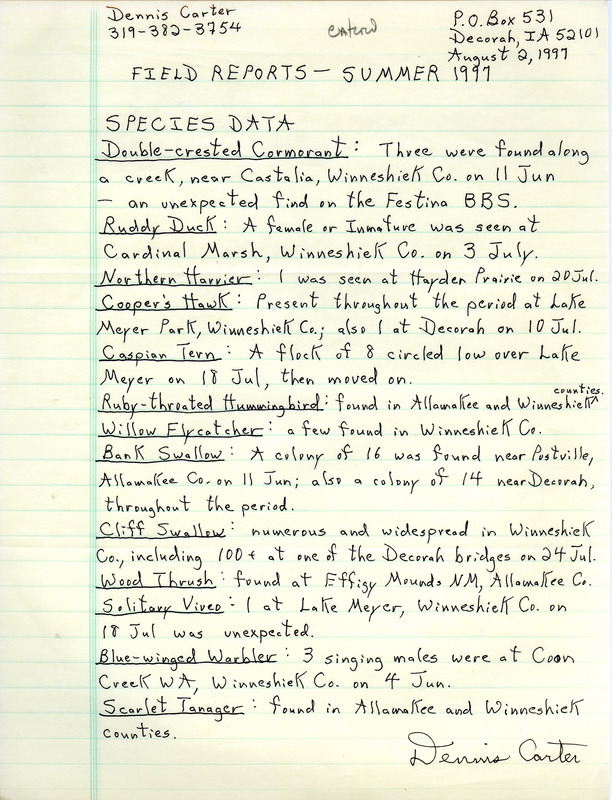 Dennis Carter
319-382-3754
entered
P.O. Box 531
Decorah, IA 52101
August 2, 1997
FIELD REPORTS - SUMMER 1997
SPECIES DATA
Double-crested Cormorant: Three were found along
a creek, near Castalia, Winneshiek Co. on 11 Jun
- an unexpected find on the Festina BBS.
Ruddy Duck: A female or Immature was seen at
Cardinal Marsh, Winneshiek Co. on 3 July.
Northern Harrier: 1 was seen at Hayden Prairie on 20 Jul.
Cooper's Hawk: Present throughout the period at Lake
Meyer Park, Winneshiek Co.; also 1 at Decorah on 10 Jul.
Caspian Tern: A flock of 8 circled low over Lake
Meyer on 18 Jul, then moved on.
Ruby-throated Hummingbird: found in Allamakee and Winneshiek counties.
Willow Flycatcher: a few found in Winneshiek Co.
Bank Swallow: A colony of 16 was found near Postville,
Allamakee Co. on 11 Jun; also a colony of 14 near Decorah,
throughout the period.
Cliff Swallow: numerous and widespread in Winneshiek
Co., including 100+ at one of the Decorah bridges on 24 Jul.
Wood Thrush: found at Effigy Mounds NM, Allamakee Co.
Solitary Vireo: 1 at Lake Meyer, Winneshiek Co. on
18 Jul was unexpected.
Blue-winged Warbler: 3 singing males were at Coon
Creek WA, Winneshiek Co. on 4 Jun.
Scarlet Tanager: found in Allamakee and Winneshiek
counties.
Dennis Carter